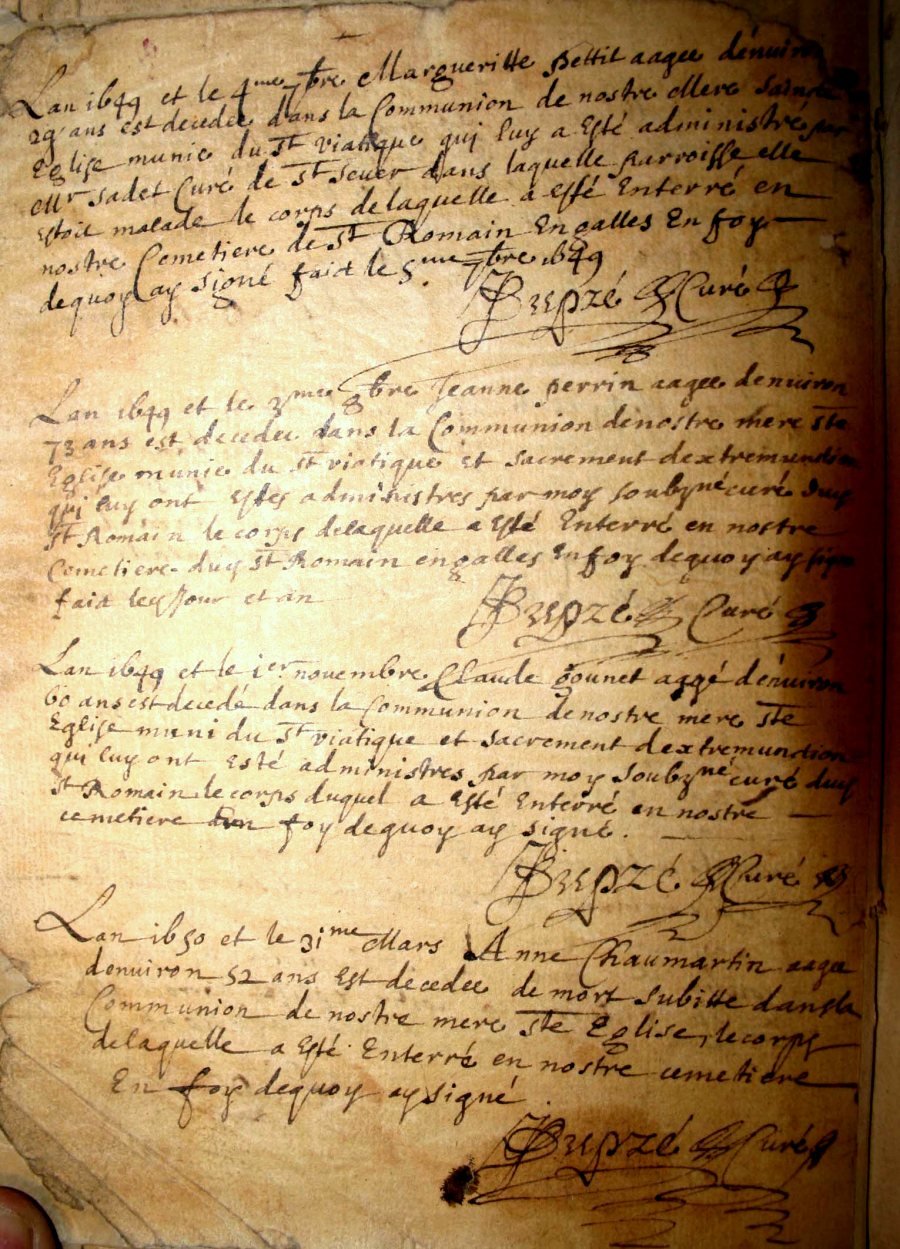 Lan 1649 et le 4me 7bre Margueritte pettit aagee dénuiron
29 ans est decedee dans la Communion de nostre Mere saincte
Eglise munie du St viatique qui luy a Esté administré par
Mr sadet Curé de St Seuer dans laquelle parroisse elle
Estoit malade le corps de laquelle a Esté Enterré en
nostre Cemetiere de St Romain En galles En foy
dequoy ay signé faict le 5me 7bre 1649
Curé
Lan 1649 et le 3me 8bre Jeanne perrin aagee denuiron
73 ans est decedee dans la Communion de nostre mere Ste
Eglise munie du St viatique et sacrement dextremunction
qui luy ont Estes administres par moy soubzné curé duy
St Romain le corps delaquelle a Esté Enterré en nostre
Cemetiere duy St Romain en galles En foy dequoy ay signe
faict leyour et an
Curé
Lan 1649 et le 1er novembre Claude gounet aagé dénuiron
60 ans est decedé dans la Communion de nostre mere Ste
Eglise muni du St viatique et sacrement dextremunction
qui luy ont Esté administres par moy soubzné curé duy
St Romain le corps duquel a Esté Enterré en nostre
cemetiere En foy dequoy ay signé.
Curé
Lan 1650 et le 31me Mars Anne Chaumartin aagee
denuiron 52 ans Est decedee de mort subitte dans la
Communion de nostre mere Ste Eglise, le corps
delaquelle a Esté Enterré en nostre cemetiere
En foy dequoy ay signé.
Curé